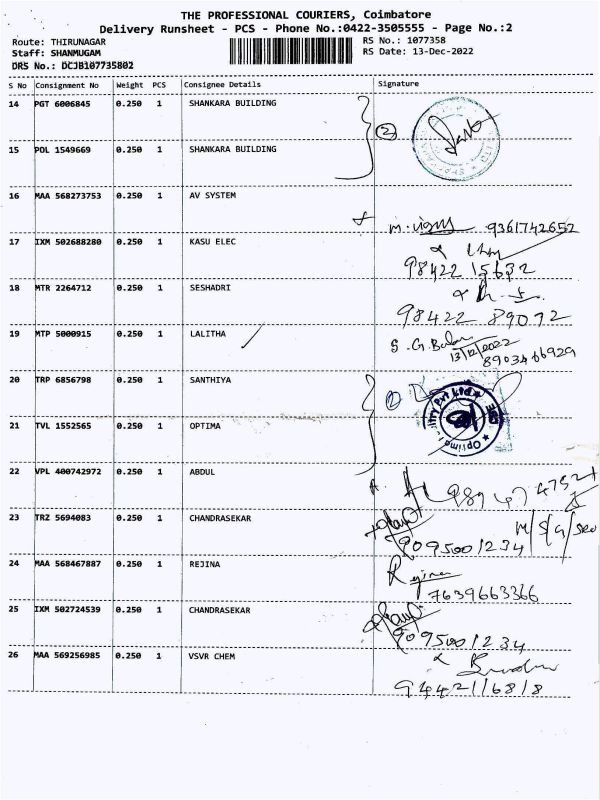 THE PROFESSIONAL COURIERS, Coimbatore
Delivery Runsheet - PCS - Phone No.:0422-3505555 - Page No.:2
Route: THIRUNAGAR
RS No.: 1077358
Staff: SHANMUGAM
RS Date: 13-Dec-2022
DRS No.: DCJB107735802
S No Consignment No Weight PCS Consignee Details Signature
14 PGT 6006845 0.250 1 SHANKARA BUILDING
2
15 POL 1549669 0.250 1 SHANKARA BUILDING
16 MAA 568273753 0.250 1 AV SYSTEM
9361742652
17 IXM 502688280 0.250 1 KASU ELEC
98422 15632
18 MTR 2264712 0.250 1 SESHADRI
98422 89072
19 MTP 5000915 0.250 1 LALITHA
13/12/2022
8903466929
20 TRP 6856798 0.250 1 SANTHIYA
21 TVL 1552565 0.250 1 OPTIMA
22 VPL 400742972 0.250 1 ABDUL
23 TRZ 5694083 0.250 1 CHANDRASEKAR
9095001234
24 MAA 568467887 0.250 1 REJINA
Rejina
7639663366
25 IXM 502724539 0.250 1 CHANDRASEKAR
9095001234
26 MAA 569256985 0.250 1 VSVR CHEM
9442116818